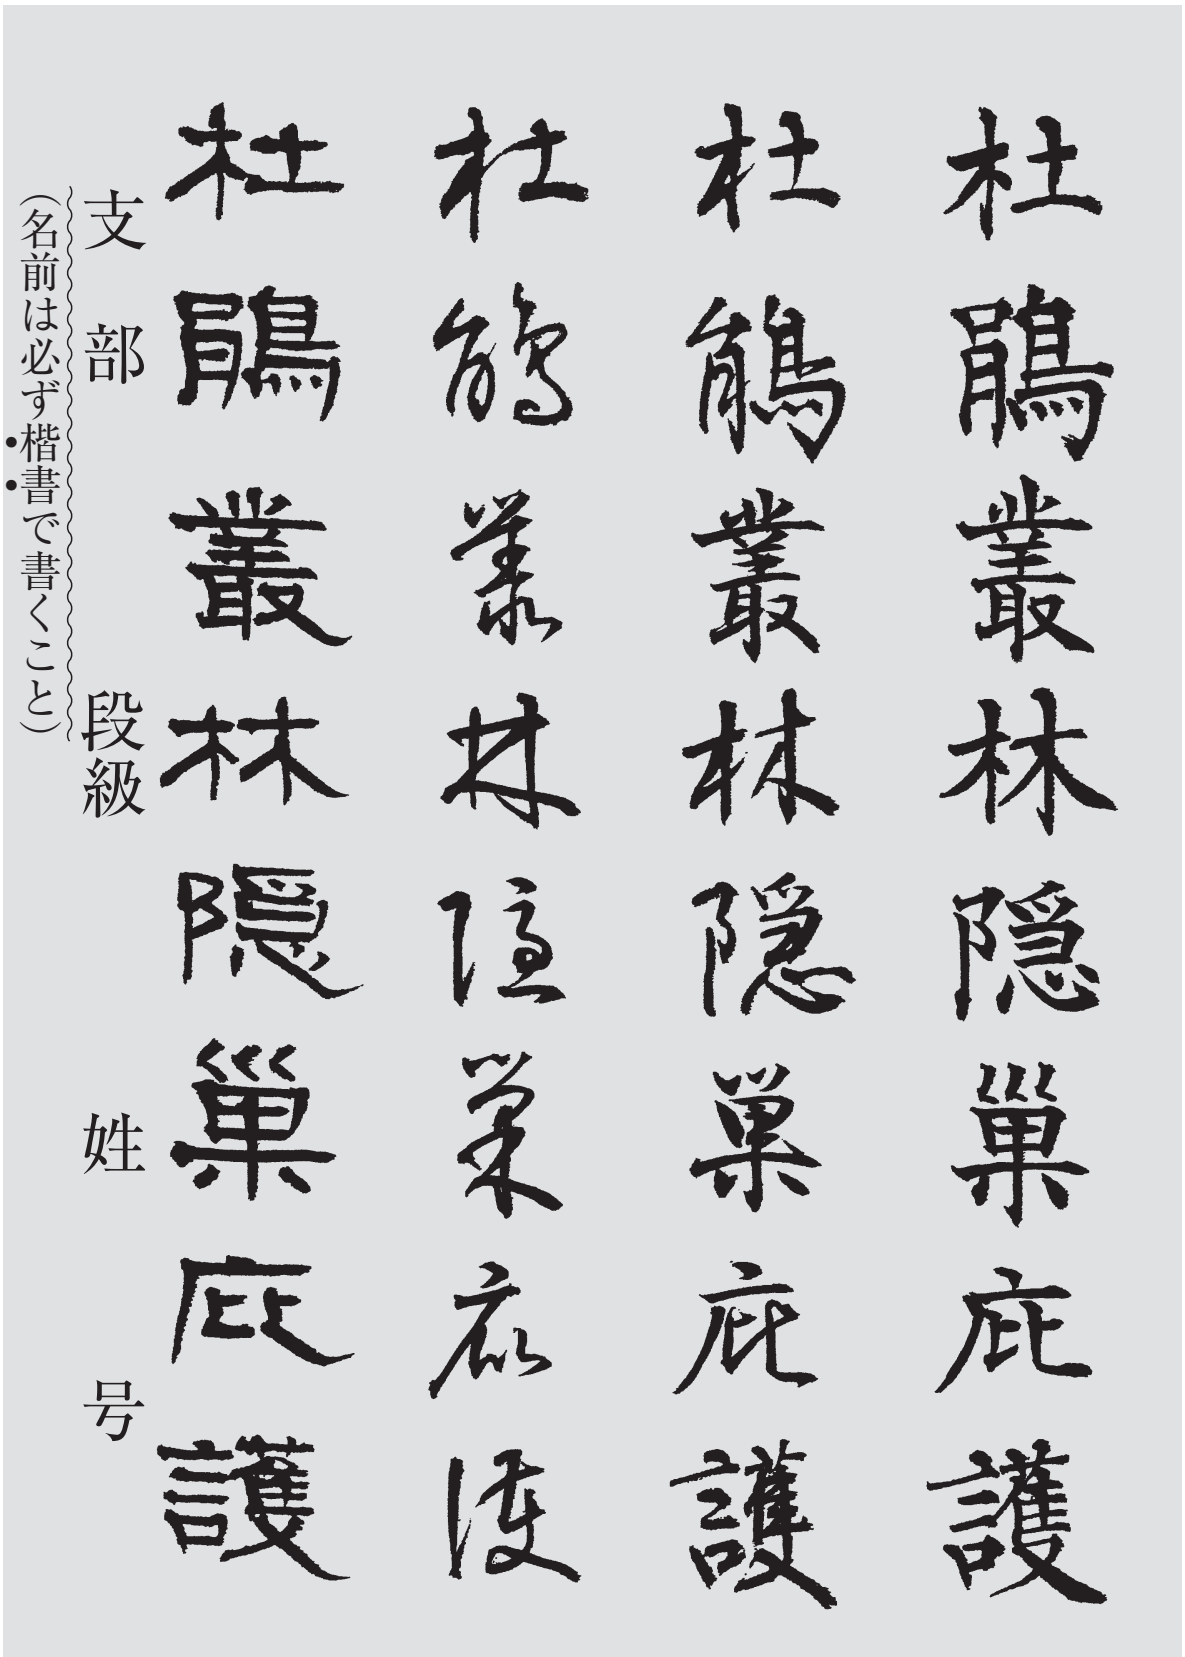 杜鵑叢林隠巣庇護
杜鵑叢林隠巣庇護
杜鵑叢林隠巣庇護
杜鵑叢林隠巣庇護
支部 段級 姓 号
（名前は必ず楷書で書くこと）